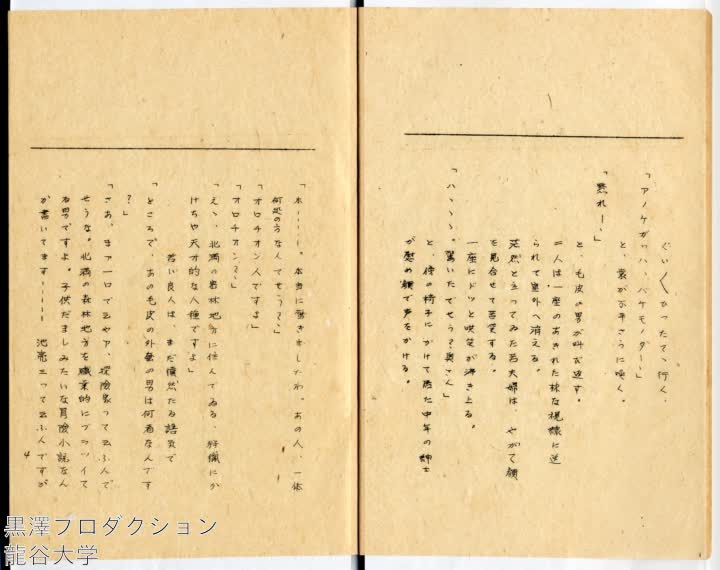 ぐい〱ひったてゝ行く。
「アノケガワハ、バケモノダー」
と、裳がぶ平さうに呟く。
「黙れー」
と、毛皮の男が叫び返す。
二人は一座のあきれた様な視線に送
られて室外へ消える。
茫然と立ってゐた若夫婦は、やがて顔
を見合せて苦笑する。
一座にドッと哄笑が沸き上る。
「ハヽヽヽ。驚いたでせう？奥さん」
と、傍の椅子にかけて居た中年の紳士
が慰め顔で声をかける。
「本ーーー。本当に驚きましたわ。あの人、一体
何処の方なんでせう？」
「オロチオン人ですよ」
「オロチオン？」
「えゝ、北満の密林地方に住んでゐる、狩猟にか
けちや天才的な人種ですよ」
若い良人は、まだ憤然たる語気で
「ところで、あの毛皮の外套の男は何者なんです
？」
「さあ、まァ一口で云やア、探險家って云ふんで
せうな。北満の森林地方を職業的にブラツイて
る男ですよ。子供だましみたいな冒險小説なん
か書いてますーーー池亮三って云ふんですが
4
黒澤プロダクション
龍谷大学